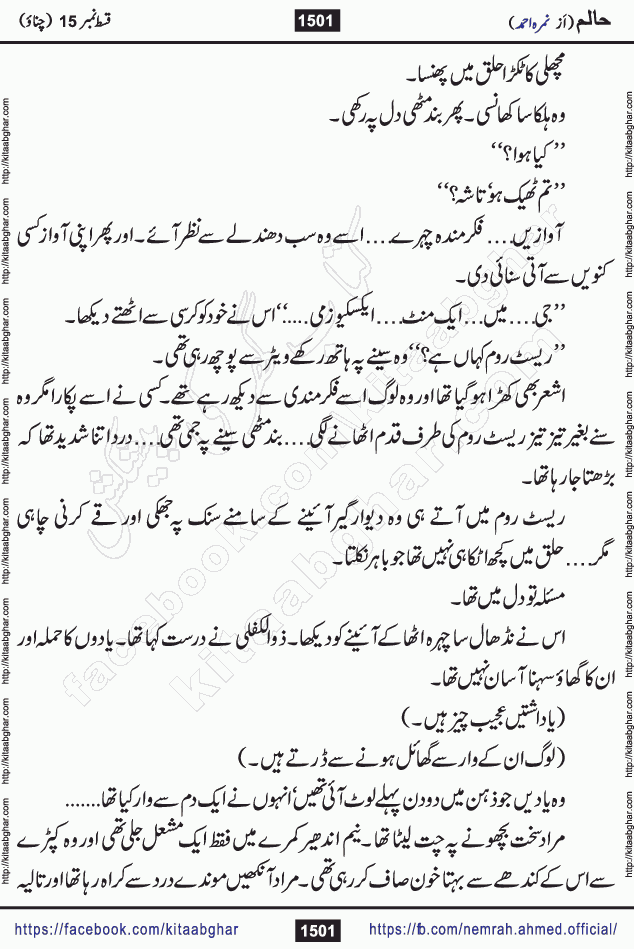 حالم (از نمرہ احمد) 1501 قسط نمبر 15 (چناؤ)
مچھلی کا ٹکڑا حلق میں پھنسا۔
وہ ہلکا سا کھانسی۔ پھر بند مٹھی دل پہ رکھی۔
’’کیا ہوا؟‘‘
’’تم ٹھیک ہو‘ تاشہ؟‘‘
آوازیں.... فکرمندہ چہرے.... اسے وہ سب دھندلے سے نظر آئے۔ اور پھر اپنی آواز کسی
کنویں سے آتی سنائی دی۔
’’جی.... میں... ایک منٹ.... ایکسکیوز می.....‘‘ اس نے خود کو کرسی سے اٹھتے دیکھا۔
’’ریسٹ روم کہاں ہے؟‘‘ وہ سینے پہ ہاتھ رکھے ویٹر سے پوچھ رہی تھی۔
اشعر بھی کھڑا ہو گیا تھا اور وہ لوگ اسے فکرمندی سے دیکھ رہے تھے۔ کسی نے اسے پکارا مگر وہ
سنے بغیر تیز تیز ریسٹ روم کی طرف قدم اٹھانے لگی.... بند مٹھی سینے پہ جمی تھی.... درد اتنا شدید تھا کہ
بڑھتا جا رہا تھا۔
ریسٹ روم میں آتے ہی وہ دیوار گیر آئینے کے سامنے سنک پہ جھکی اور قے کرنی چاہی
مگر.... حلق میں کچھ اٹکا ہی نہیں تھا جو باہر نکلتا۔
مسئلہ تو دل میں تھا۔
اس نے نڈھال سا چہرہ اٹھا کے آئینے کو دیکھا۔ ذوالکفلی نے درست کہا تھا۔ یادوں کا حملہ اور
ان کا گھاؤ سہنا آسان نہیں تھا۔
(یادداشتیں عجیب چیز ہیں۔)
(لوگ ان کے وار سے گھائل ہونے سے ڈرتے ہیں۔)
وہ یادیں جو ذہن میں دو دن پہلے لوٹ آئی تھیں‘ انہوں نے ایک دم سے وار کیا تھا.......
مراد سخت بچھونے پہ چت لیٹا تھا۔ نیم اندھیر کمرے میں فقط ایک مشعل جلی تھی اور وہ کپڑے
سے اس کے کندھے سے بہتا خون صاف کر رہی تھی۔ مراد آنکھیں موندے درد سے کراہ رہا تھا اور تالیہ
https://facebook.com/kitaabghar 1501 https://fb.com/nemrah.ahmed.official/
http://kitaabghar.com http://kitaabghar.com http://kitaabghar.com http://kitaabghar.com http://kitaabghar.com http://kitaabghar.com http://kitaabghar.com http://kitaabghar.com
http://kitaabghar.com http://kitaabghar.com http://kitaabghar.com http://kitaabghar.com http://kitaabghar.com http://kitaabghar.com http://kitaabghar.com http://kitaabghar.com
کتاب گھر کی پیشکش
facebook.com/kitaabghar
kitaabghar.com